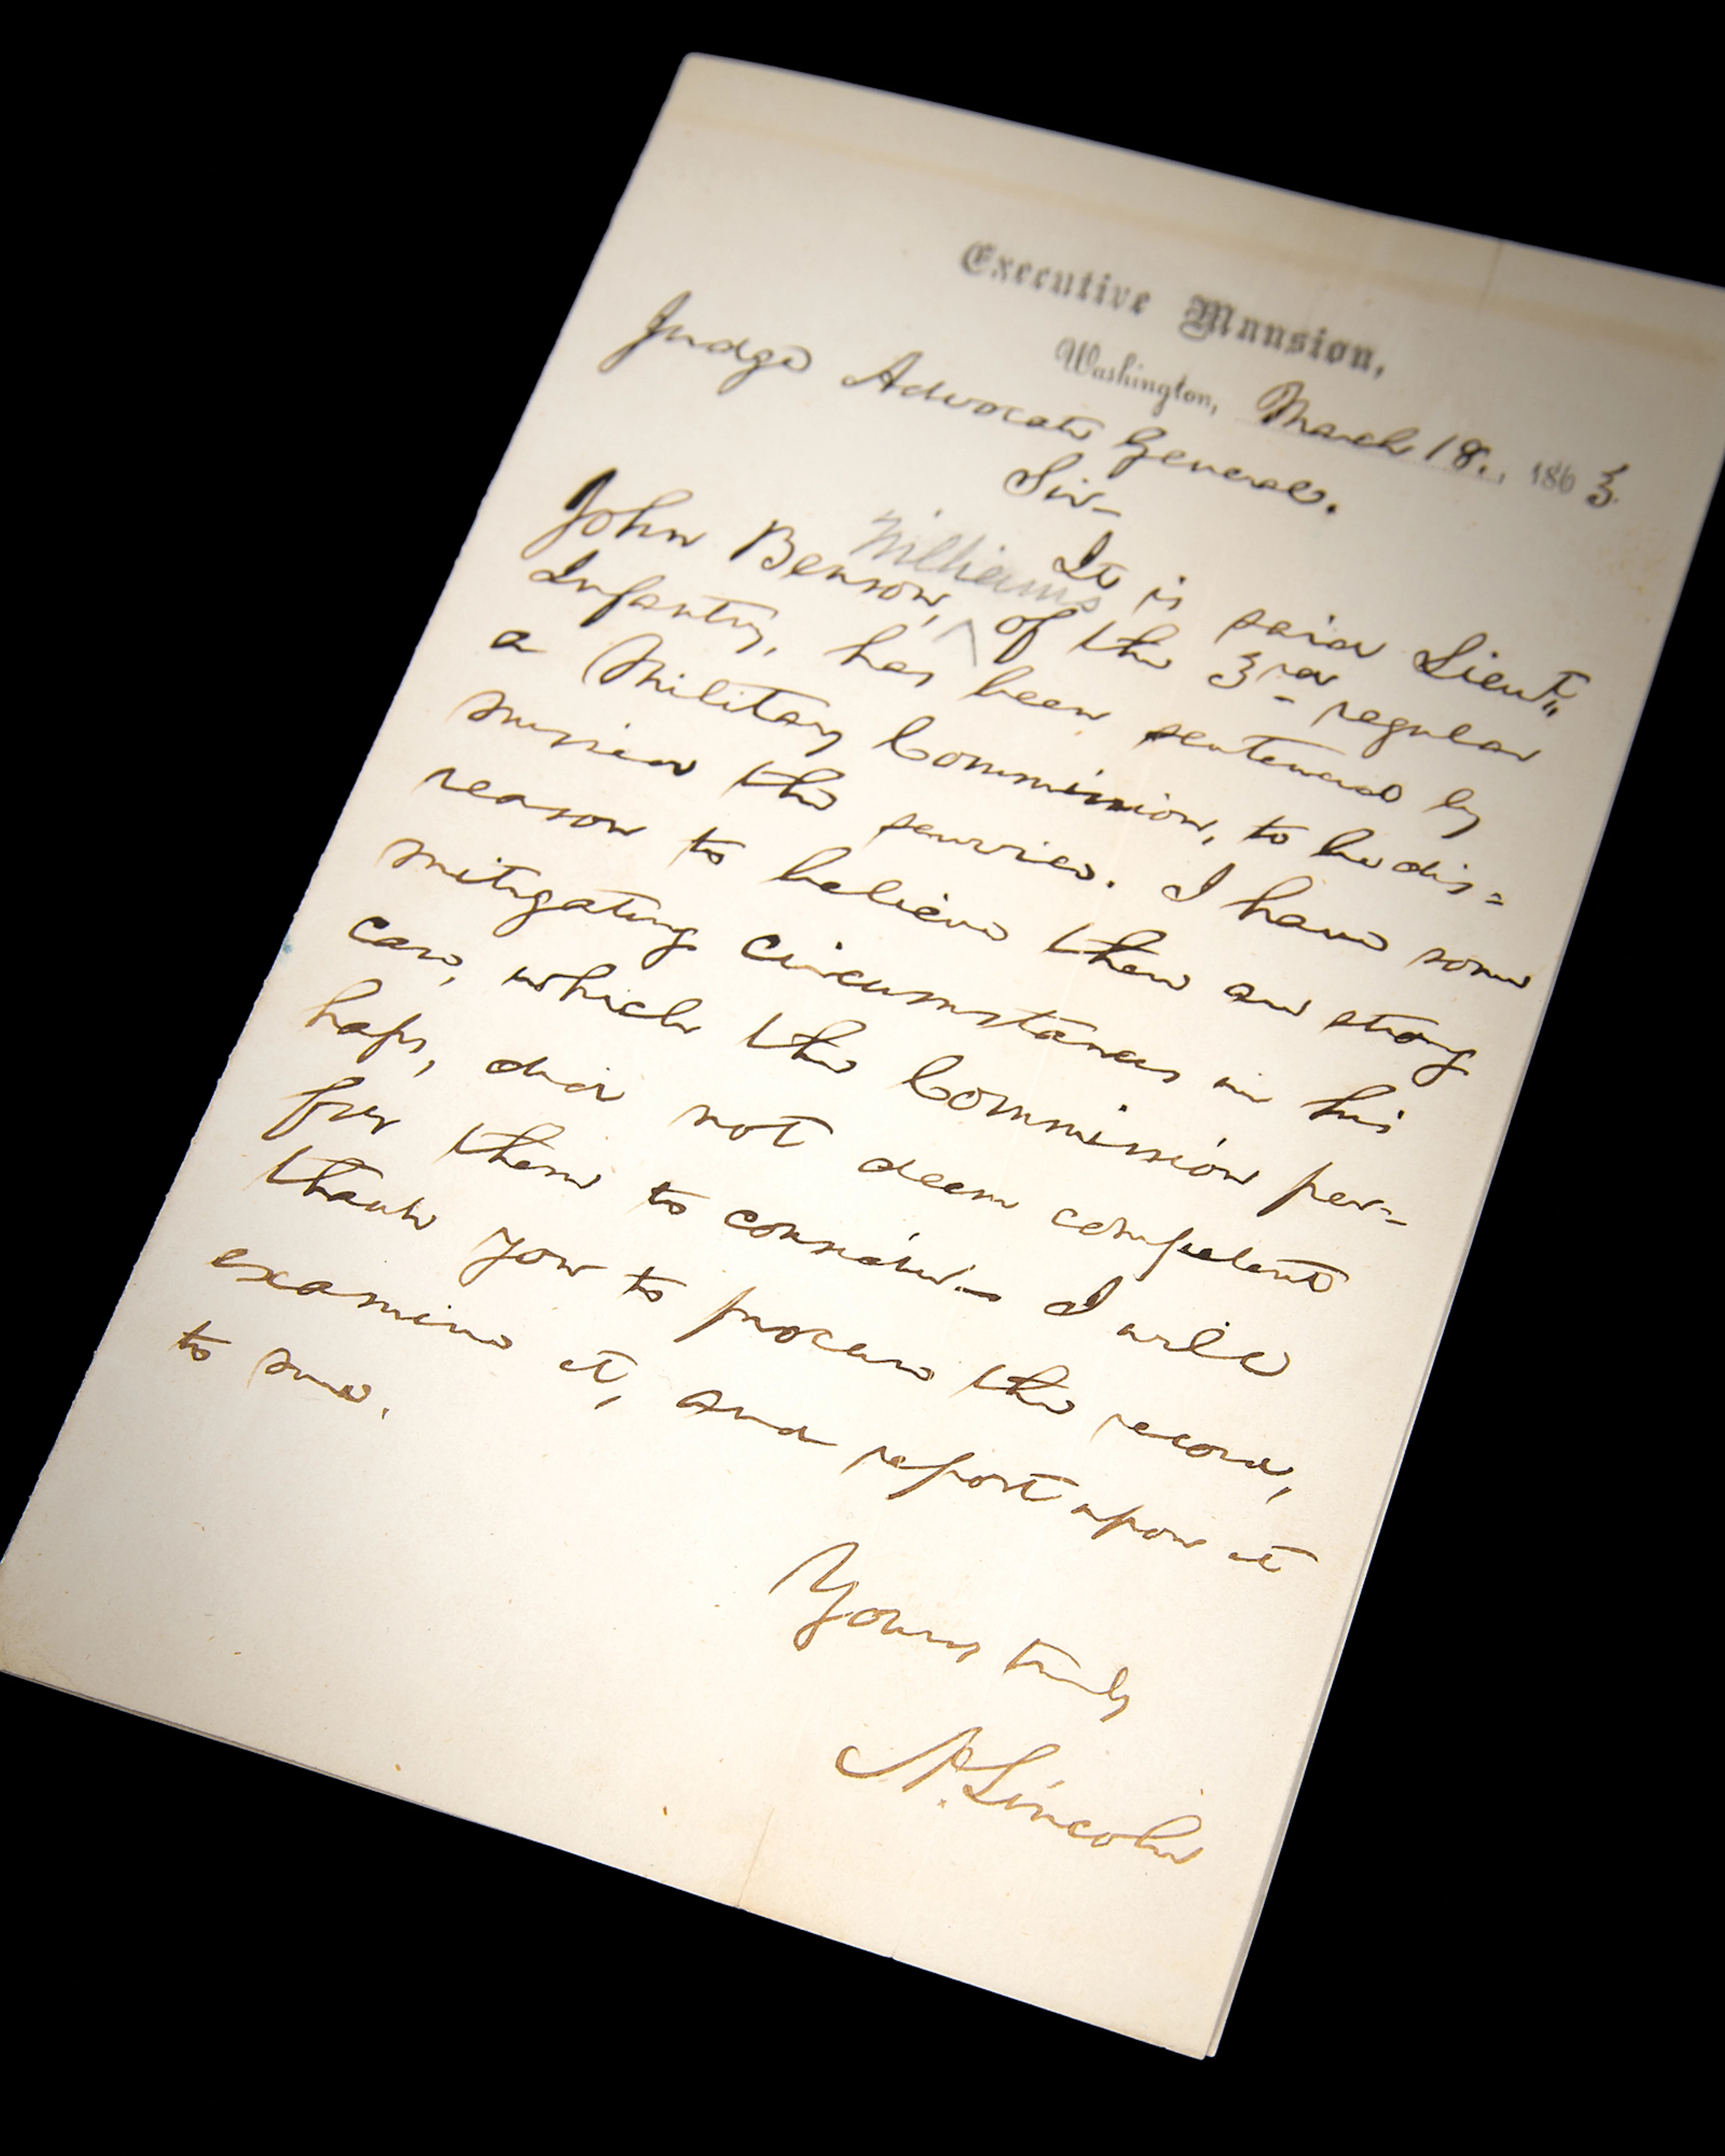 Executive Mansion,
Washington, March 18., 1863.
Judge Advocate General.
Sir—
It is said Lieut.
Williams
John Benson, ^ of the 3rd regular
Infantry, has been sentenced by
a Military Commission, to be dis=
missed the service. I have some
reason to believe there are strong
mitigating circumstances in his
case, which the Commission per-
haps, did not deem competent
for them to consider— I will
thank you to procure the record,
examine it, and report upon it
to me.
Yours truly
A. Lincoln